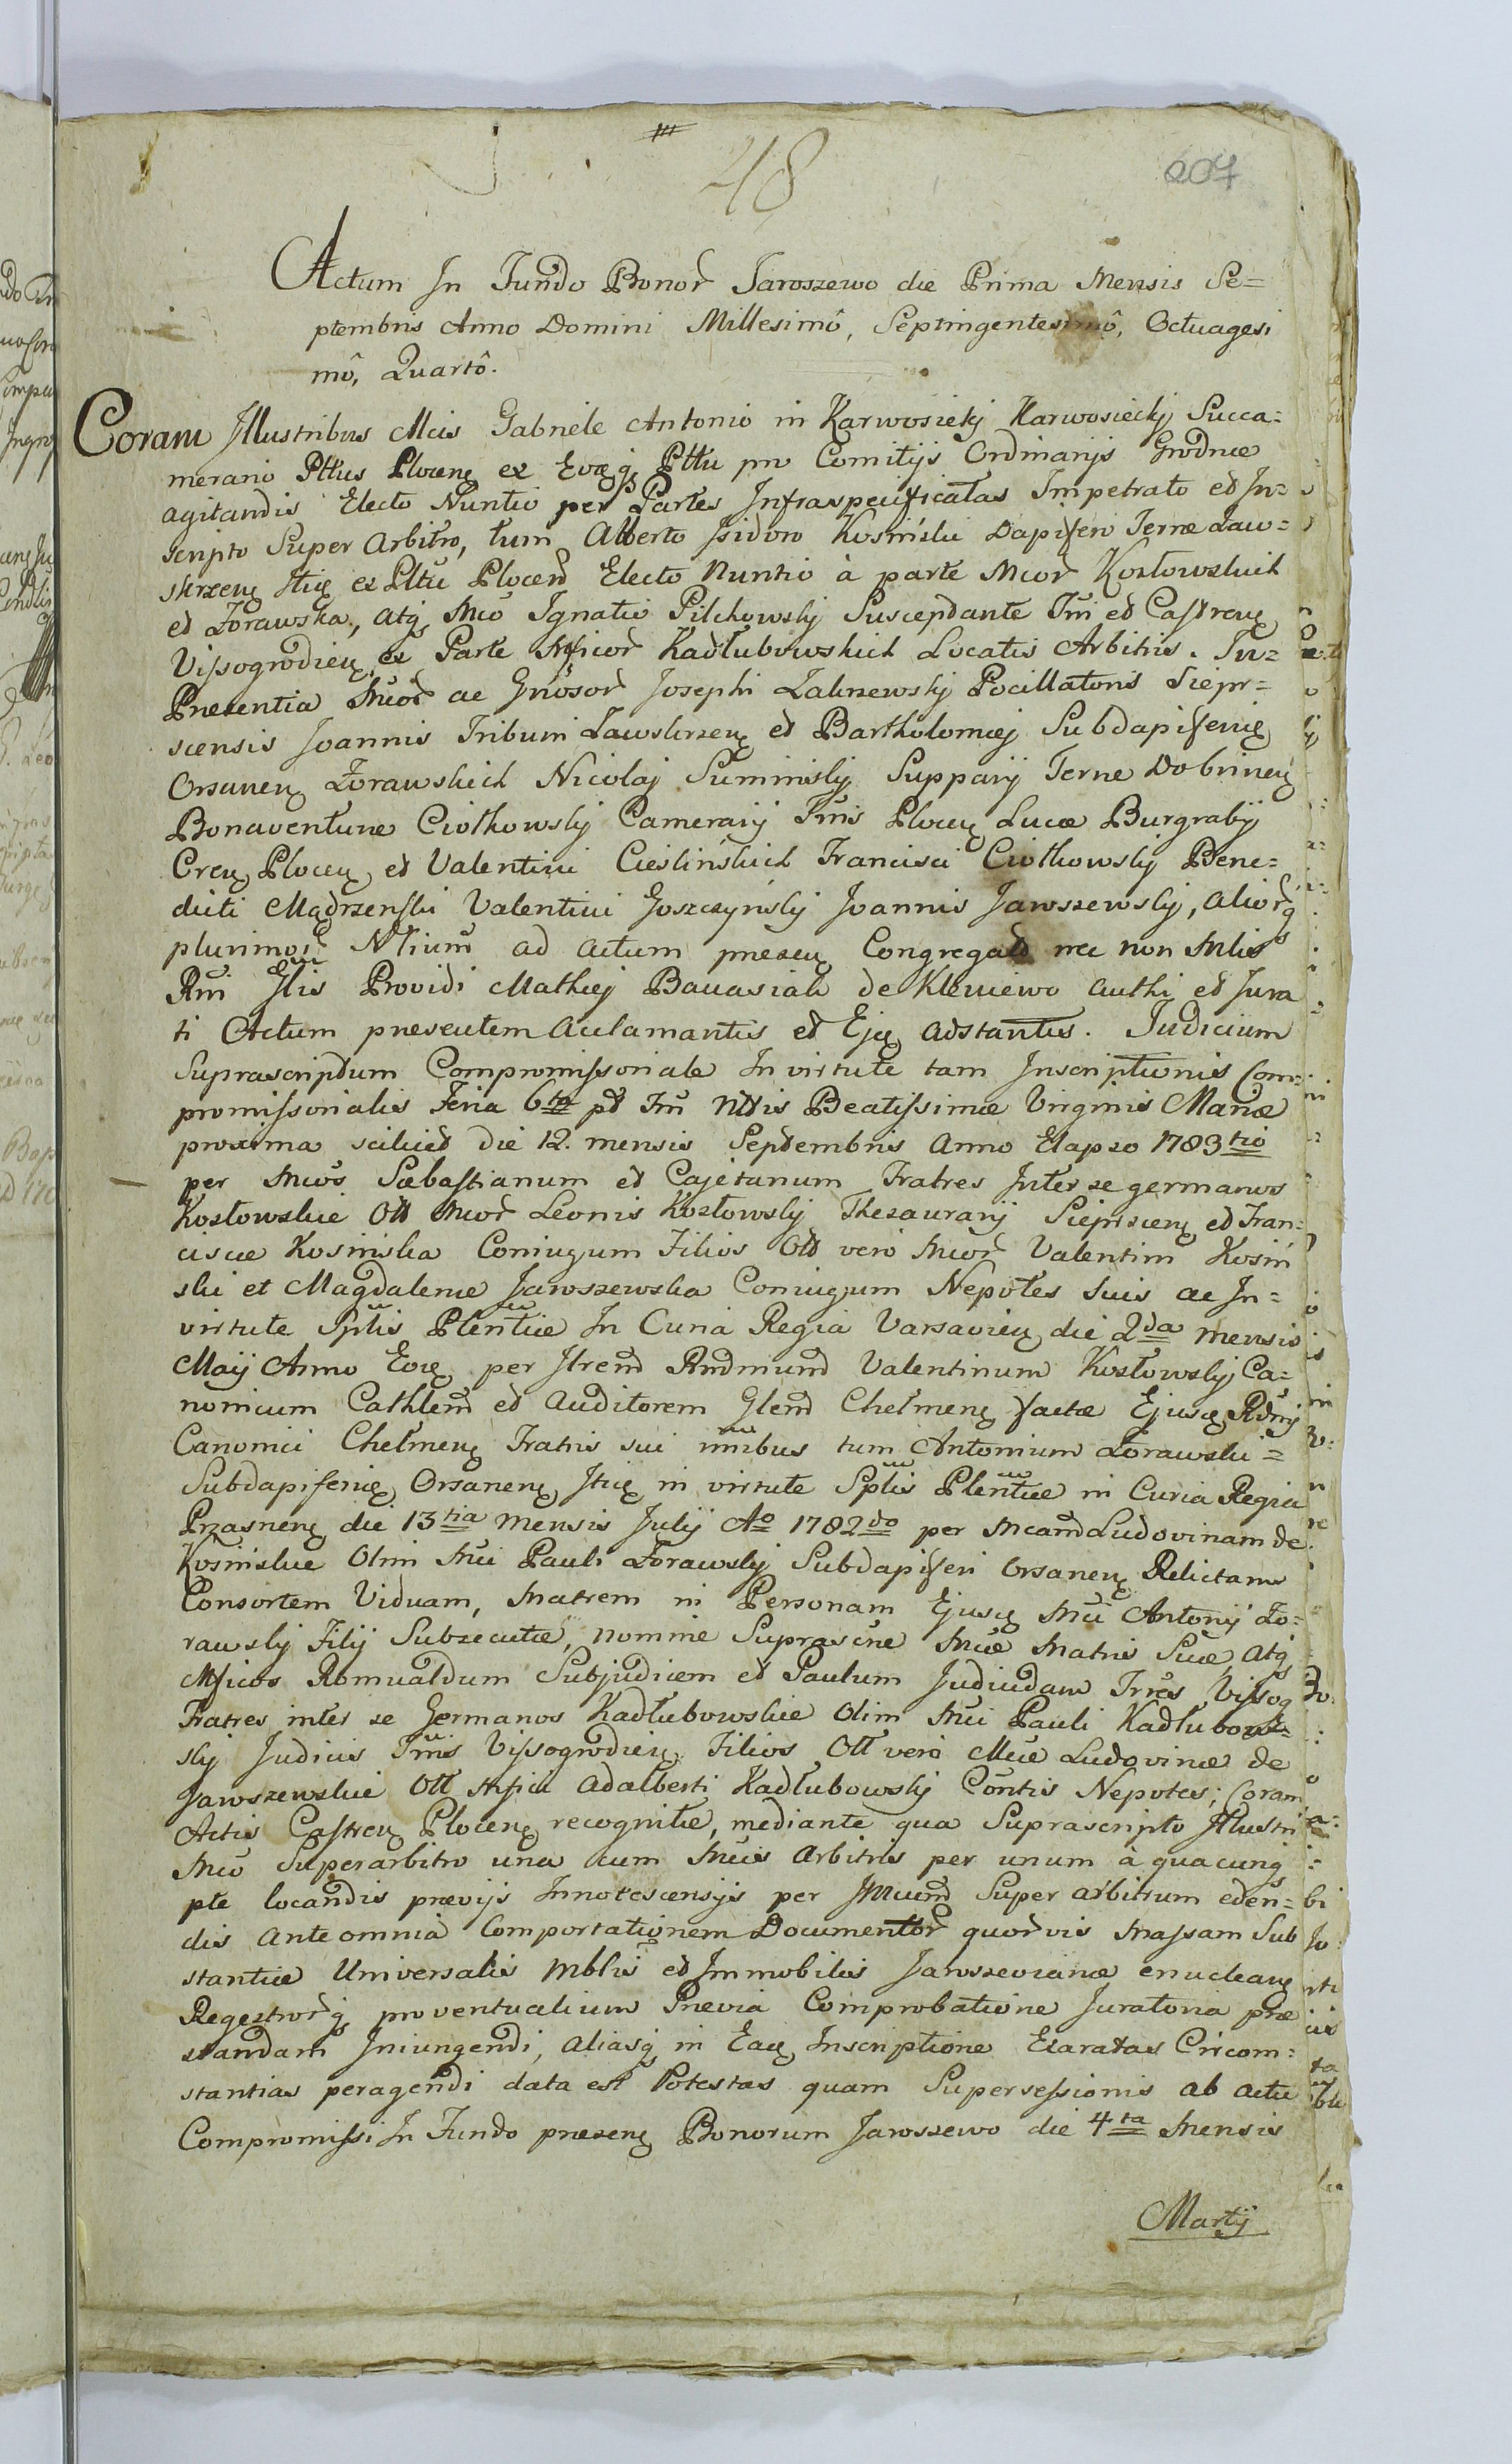 48
207
Actum In Fundo Bonor Jaroszewo die Prima Mensis Se=
ptembris Anno Domini Millesimô, Septingentesimô, Octuagesi
mô, Quartô.
Coram Illustribus Mcis Gabriele Antonio in Karwosieky Karwosiecky Succa=
merario Pttus Plocen ex Eoq Pttu pro Comitijs Ordinarijs Grodnæ
agitandis Electo Nuntio per Partes Infraspecificatas Impetrato et In=
scripto Super Arbitro, tum Alberto Isidoro Kosinski Dapifero Terræ Zaw=
skrzen ex Pttu Plocen Electo Nuntio à parte Mcor Kozłowskich
et Żorawska, atq Mco Ignatio Pilchowsky Susceptante Trri et Castren
Vissogrodien ex Parte Mficor Kadłubowskich Locatis Arbitris. In=
Presentia Mcor ac Gnosor Josephi Zakrzewsky Pocillatoris Siepr=
scensis Joannis Tribuni Zawskrzen et Bartholomæj Subdapiferi
Orsanen Żorawskich Nicolaj Suminsky Supparij Terræ Dobrinen
Bonaventuræ Ciołkowsky Camerarij Trris Plocen Lucæ Burgrabij
Cren Plocen et Valentini Cieślińskich Francisci Ciołkowsky Bene=
dicti Mądrzenski Valentini Goszczynsky Joannis Jaroszewsky, aliorq
plurimor Nlium ad actum præsen Congregat nec non Mlis
Rmi Providi Mathej Banasiak de Kleniewo authi et Jura
ti Actum presentem aclamantis et Ejq adstantis. Judicium
Suprascriptum Compromissoriale In virtute tam Inscriptionis Com=
promissorialis Feria 6ta pt Fm Nttis Beatissimæ Virginis Mariæ
proxima sciliet die 12. mensis Septembris Anno Elapso 1783tio
per Mcos Sæbastianum et Cajetanum Fratres Inter se germanos
Kozłowskie Olt Mcor Leonis Kozłowsky Thesaurarij Sieprscen et Fran=
ciscæ Kosinska Coniugum Filios Olt vero Mcor Valentini Kosin
ski et Magdalenæ Jaroszewska Coniugum Nepotes suis ac In=
virtute Splis Plentiæ In Curia Regia Varsavien die 2da mensis
Maij Anno Eoq per Valentinum Kozłowsky Ca=
nonicum Cathlem et Auditorem Glem Chelmen factæ Ejusq Rdmj
Canonici Chelmen Fratris sui nnibus tum Antonium Żorawski=
Subdapiferi Orsanen in virtute Splis Plentiæ in Curia Regia
Przasnen die 13tia mensis Julij Ao 1782do per Mcam Ludovinam de
Kosinskie Olim Mci Pauli Żorawsky Subdapiferi Orsanen Relictam
Consortem Viduam, Matrem in Personam Ejusq Mci Antonij Żo=
rawsky Filij Subsecutæ, nomine Mcæ Matris Suæ, atq
Mficos Romualdum Subjudicem et Paulum Judicidam Trres Vissog
Fratres inter se Germanos Kadłubowskie Olim Mci Pauli Kadłubow=
sky Judicis Trris Vissogrodien Filios Olt vero Mcæ Ludovinæ de
Jaroszewskie Olt Mfici Adalberti Kadłubowsky Contis Nepotes; Coram
Actis Castren Plocen recognitæ, mediante qua Suprascripto Illustri
Mco Superarbitro una cum Mcis Arbitris per unum à quacunq
pte locandis prævijs Innotescensijs per Super arbitrum eden=
dis Ante omnia Comportationem Documentor quorvis Massam Sub
stantiæ Universalis Mblis et Immobilis Jaroszevianæ enuclean
Regestrorq proventualium Previa Comprobatione Juratoria præ
standam Iniungendi, aliasq in Eaq Inscriptione Exaratas Circom=
stantias peragendi data est Potestas quam Supersessionis ab actu
Compromissi In Fundo præsen Bonorum Jaroszewo die 4ta Mensis
Martij